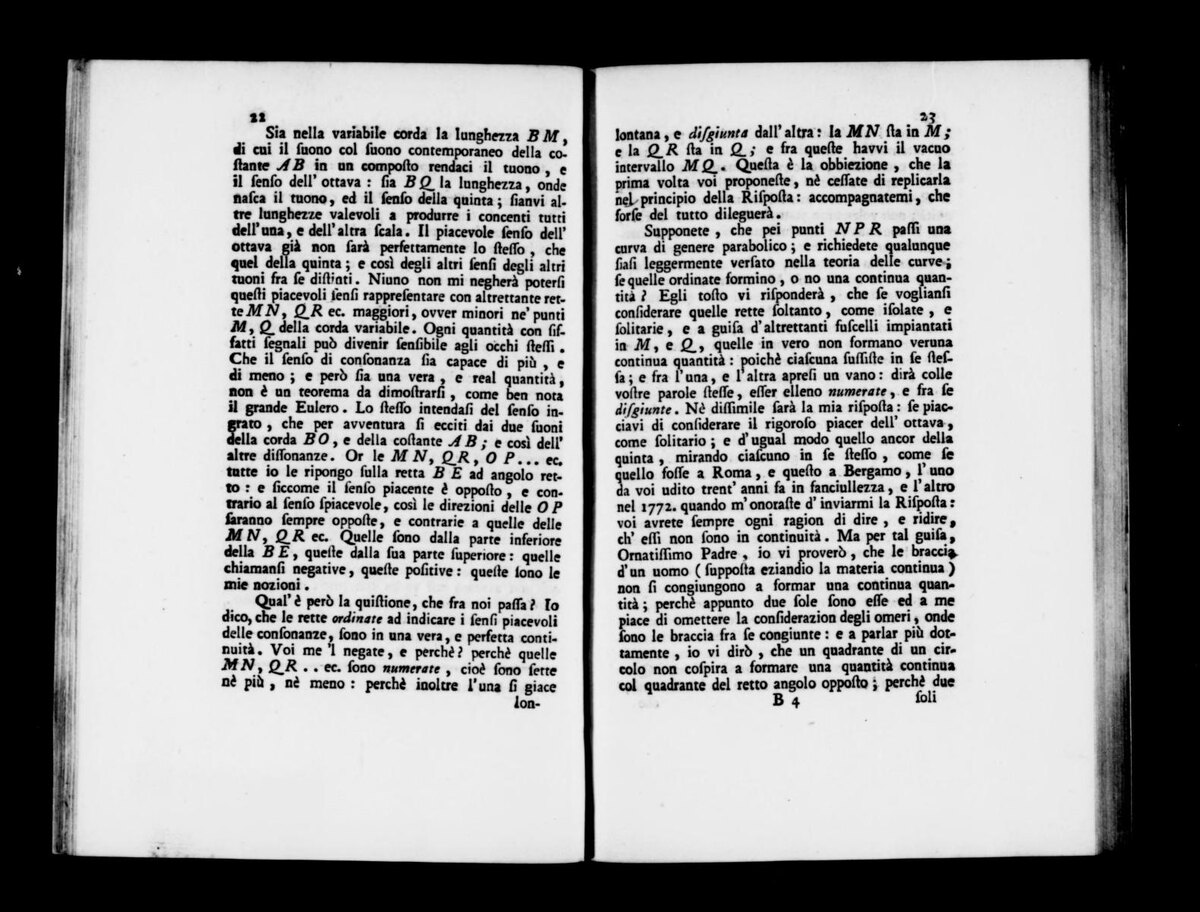 22
Sia nella variabile corda la lunghezza BM,
di cui il ſuono col ſuono contemporaneo della co-
ſtante AB in un compoſto rendaci il tuono, e
il ſenſo dell' ottava: ſia BQ la lunghezza, onde
naſca il tuono, ed il ſenſo della quinta; ſianvi al-
tre lunghezze valevoli a produrre i concenti tutti
dell'una, e dell'altra ſcala. Il piacevole ſenſo dell'
ottava già non ſarà perfettamente lo ſteſſo, che
quel della quinta; e così degli altri ſenſi degli altri
tuoni fra ſe diſtinti. Niuno non mi negherà poterſi
queſti piacevoli ſenſi rappreſentare con altrettante ret-
te MN, QR ec. maggiori, ovver minori ne' punti
M, Q della corda variabile. Ogni quantità con ſif-
fatti ſegnali può divenir ſenſibile agli occhi ſteſſi.
Che il ſenſo di conſonanza ſia capace di più, e
di meno; e però ſia una vera, e real quantità,
non è un teorema da dimoſtrarſi, come ben nota
il grande Eulero. Lo ſteſſo intendaſi del ſenſo in-
grato, che per avventura ſi ecciti dai due ſuoni
della corda BO, e della coſtante AB; e così dell'
altre diſſonanze. Or le MN, QR, OP... ec.
tutte io le ripongo ſulla retta BE ad angolo ret-
to: e ſiccome il ſenſo piacente è oppoſto, e con-
trario al ſenſo ſpiacevole, così le direzioni delle OP
ſaranno ſempre oppoſte, e contrarie a quelle delle
MN, QR ec. Quelle ſono dalla parte inferiore
della BE, queſte dalla ſua parte ſuperiore: quelle
chiamanſi negative, queſte poſitive: queſte ſono le
mie nozioni.
Qual'è però la quiſtione, che fra noi paſſa? Io
dico, che le rette ordinate ad indicare i ſenſi piacevoli
delle conſonanze, ſono in una vera, e perfetta conti-
nuità. Voi me 'l negate, e perchè? perchè quelle
MN, QR .. ec. ſono numerate, cioè ſono ſette
nè più, nè meno: perchè inoltre l'una ſi giace
lon-
23
lontana, e diſgiunta dall'altra: la MN ſta in M;
e la QR ſta in Q; e fra queſte havvi il vacuo
intervallo MQ. Queſta è la obbiezione, che la
prima volta voi proponeſte, nè ceſſate di replicarla
nel principio della Riſpoſta: accompagnatemi, che
forſe del tutto dileguerà.
Supponete, che pei punti NPR paſſi una
curva di genere parabolico; e richiedete qualunque
ſiaſi leggermente verſato nella teoria delle curve;
ſe quelle ordinate formino, o no una continua quan-
tità? Egli toſto vi riſponderà, che ſe voglianſi
conſiderare quelle rette ſoltanto, come iſolate, e
ſolitarie, e a guiſa d'altrettanti fuſcelli impiantati
in M, e Q, quelle in vero non formano veruna
continua quantità: poichè ciaſcuna ſuſſiſte in ſe ſteſ-
ſa; e fra l'una, e l'altra apreſi un vano: dirà colle
voſtre parole ſteſſe, eſſer elleno numerate, e fra ſe
diſgiunte. Nè diſſimile ſarà la mia riſpoſta: ſe piac-
ciavi di conſiderare il rigoroſo piacer dell'ottava,
come ſolitario; e d'ugual modo quello ancor della
quinta, mirando ciaſcuno in ſe ſteſſo, come ſe
quello foſſe a Roma, e queſto a Bergamo, l'uno
da voi udito trent' anni fa in fanciullezza, e l'altro
nel 1772. quando m'onoraſte d'inviarmi la Riſpoſta:
voi avrete ſempre ogni ragion di dire, e ridire,
ch' eſſi non ſono in continuità. Ma per tal guiſa,
Ornatiſſimo Padre, io vi proverò, che le braccia
d'un uomo (ſuppoſta eziandio la materia continua)
non ſi congiungono a formar una continua quan-
tità; perchè appunto due ſole ſono eſſe ed a me
piace di omettere la conſiderazion degli omeri, onde
ſono le braccia fra ſe congiunte: e a parlar più dot-
tamente, io vi dirò, che un quadrante di un cir-
colo non coſpira a formare una quantità continua
col quadrante del retto angolo oppoſto; perchè due
B 4
ſoli